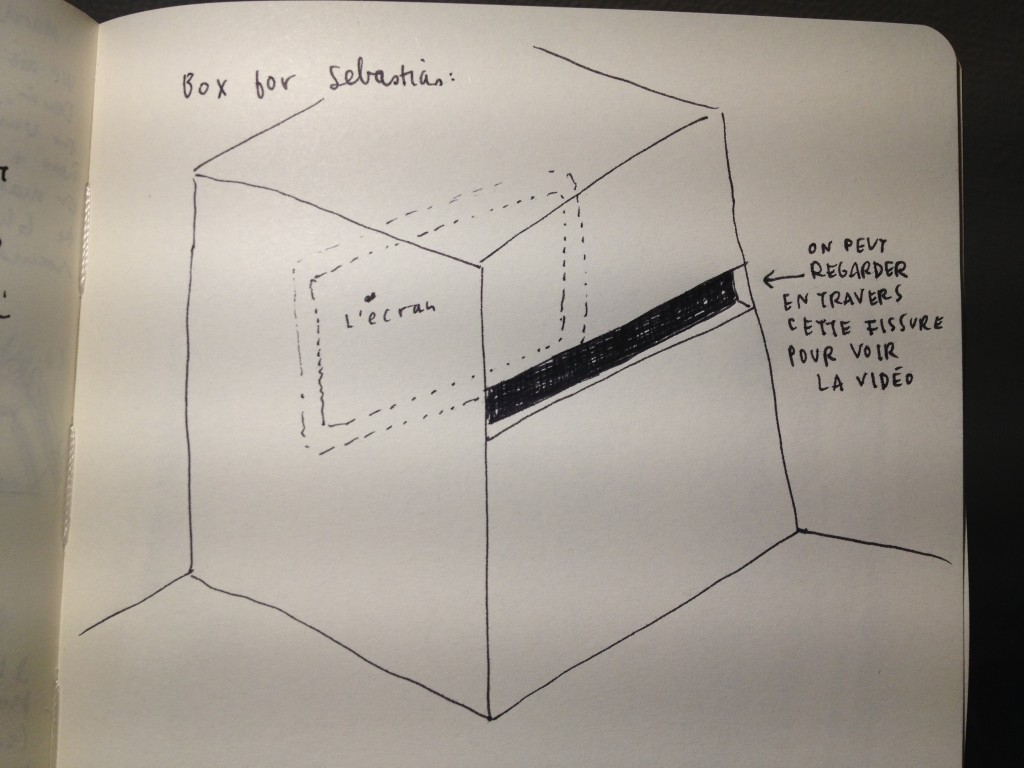 Box for Sebastián:
L'écran
ON PEUT
REGARDER
EN TRAVERS
CETTE FISSURE
POUR VOIR
LA VIDÉO